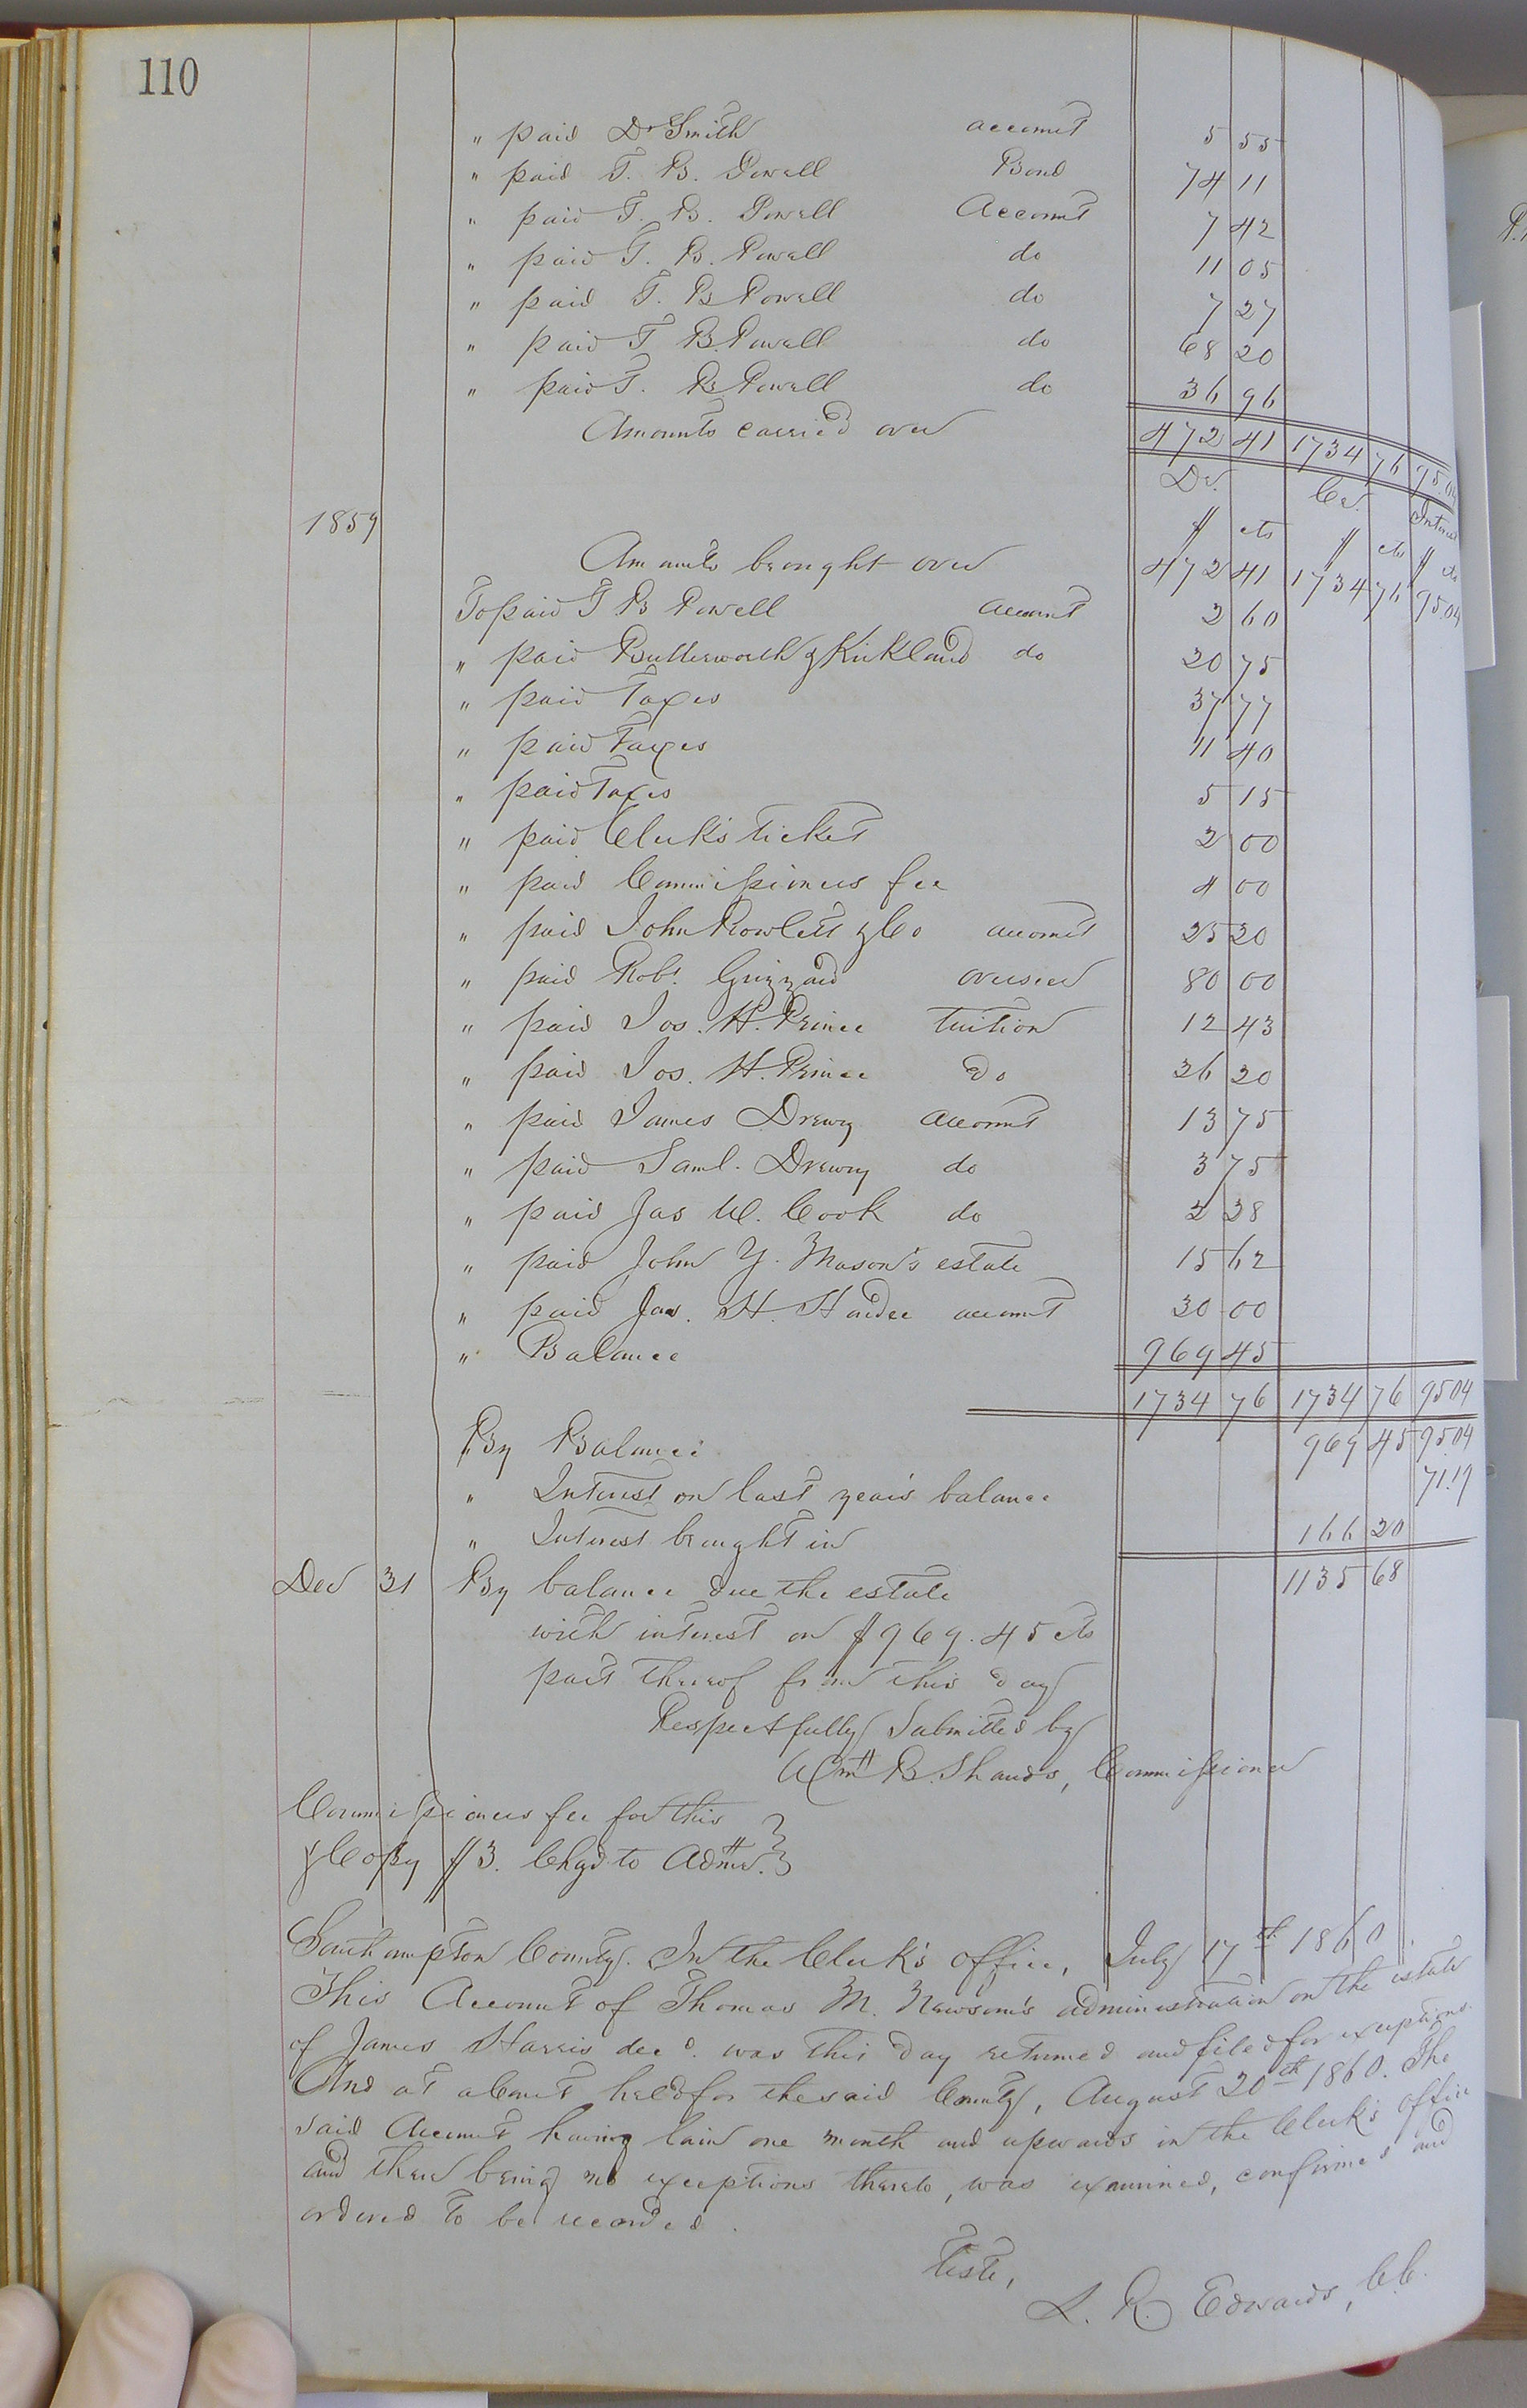 110
" paid Dr Smith account 5 55
" paid T. B. Powell Bond 74 11
" paid T. B. Powell Account 7 42
" paid T. B. Powell do 11 05
" paid T. B Powell do 7 27
" paid T B. Powell do 68 20
" paid T. B Powell do 36 96
Amounts carried over 472 41 1734 76 95.04
Dr. Cr. Interest
1859 $ cts $ cts $ cts
Amounts brought over 472 41 1734 76 95.04
To paid T B Powell account 2 60
" paid Butterworth & Kirkland do 20 75
" paid Taxes 37 77
" paid Taxes 11 40
" paid Taxes 5 15
" paid Clerk's ticket 2 00
" paid Commissioners fee 4 00
" paid John Rowlett & Co account 25 20
" paid Robt. Grizzard overseer 80 00
" paid Jos. H. Prince tuition 12 43
" paid Jos. H. Prince Do 26 20
" paid James Drewry account 13 75
" paid Saml. Drewry do 3 75
" paid Jas W. Cook do 2 38
" paid John Y. Mason's estate 15 62
" paid Jas. H. Hardee account 30 00
" Balance 969 45
1734 76 1734 76 95 04
By Balance 969 45 95.04
" Interest on last year's balance 71.19
" Interest brought in 166 20
Dec 31 By balance due the estate 1135 68
with interest on $969.45 cts
part thereof from this day
Respectfully Submitted by
Wm B. Shands, Commissioner
Commissioners fee for this
& Copy $3. Chgd to Admr.
Southampton County. In the Clerk's office, July 17th 1860.
This Account of Thomas M. Newsom's administration on the estate
of James Harris decd. was this day returned and filed for exceptions
And at a Court held for the said County, August 20th 1860. The
said Account having lain one month and upwards in the Clerk's office
and there being no exceptions thereto, was examined, confirmed and
ordered to be recorded.
Teste,
L. R. Edwards, C.C.